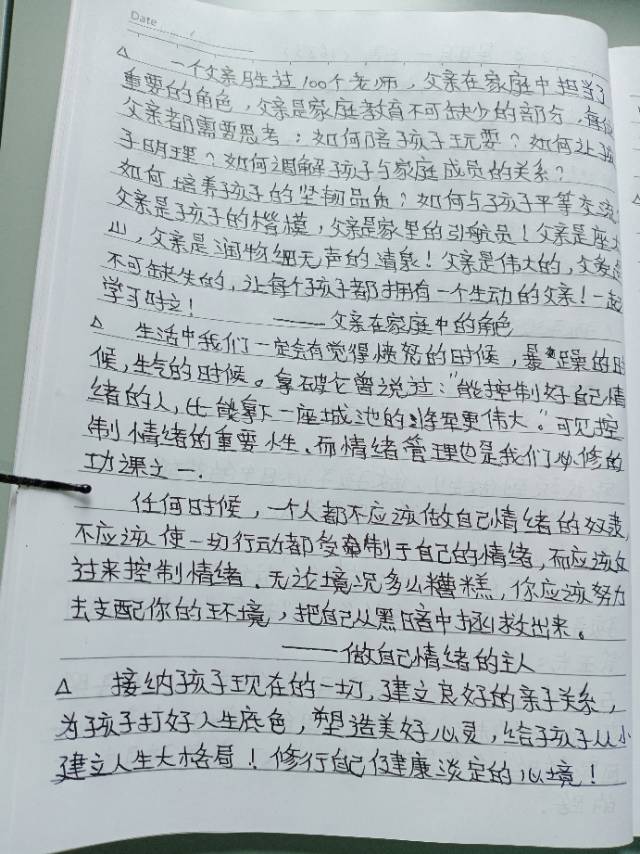 Date
△ 一个父亲胜过100个老师，父亲在家庭中担当了
重要的角色，父亲是家庭教育不可缺少的部分，每位
父亲都需要思考：如何陪孩子玩耍？如何让孩
子明理？如何调解孩子与家庭成员的关系？
如何培养孩子的坚韧品质？如何与孩子平等交流
父亲是孩子的楷模，父亲是家里的引航员！父亲是座大
山，父亲是润物细无声的清泉！父亲是伟大的，父爱是
不可缺失的，让每个孩子都拥有一个生动的父亲！一起
学习成立！
——父亲在家庭中的角色
△ 生活中我们一定会有觉得愤怒的时候，暴躁的时
候，生气的时候。拿破仑曾说过："能控制好自己情
绪的人，比能拿下一座城池的将军更伟大。"可见控
制情绪的重要性、而情绪管理也是我们必修的
功课之一.
任何时候，一个人都不应该做自己情绪的奴隶，
不应该使一切行动都受牵制于自己的情绪，而应该反
过来控制情绪．无论境况多么糟糕，你应该努力
去支配你的环境，把自己从黑暗中拯救出来。
——做自己情绪的主人
△ 接纳孩子现在的一切，建立良好的亲子关系，
为孩子打好人生底色，塑造美好心灵，给孩子从小
建立人生大格局！修行自己健康淡定的心境！